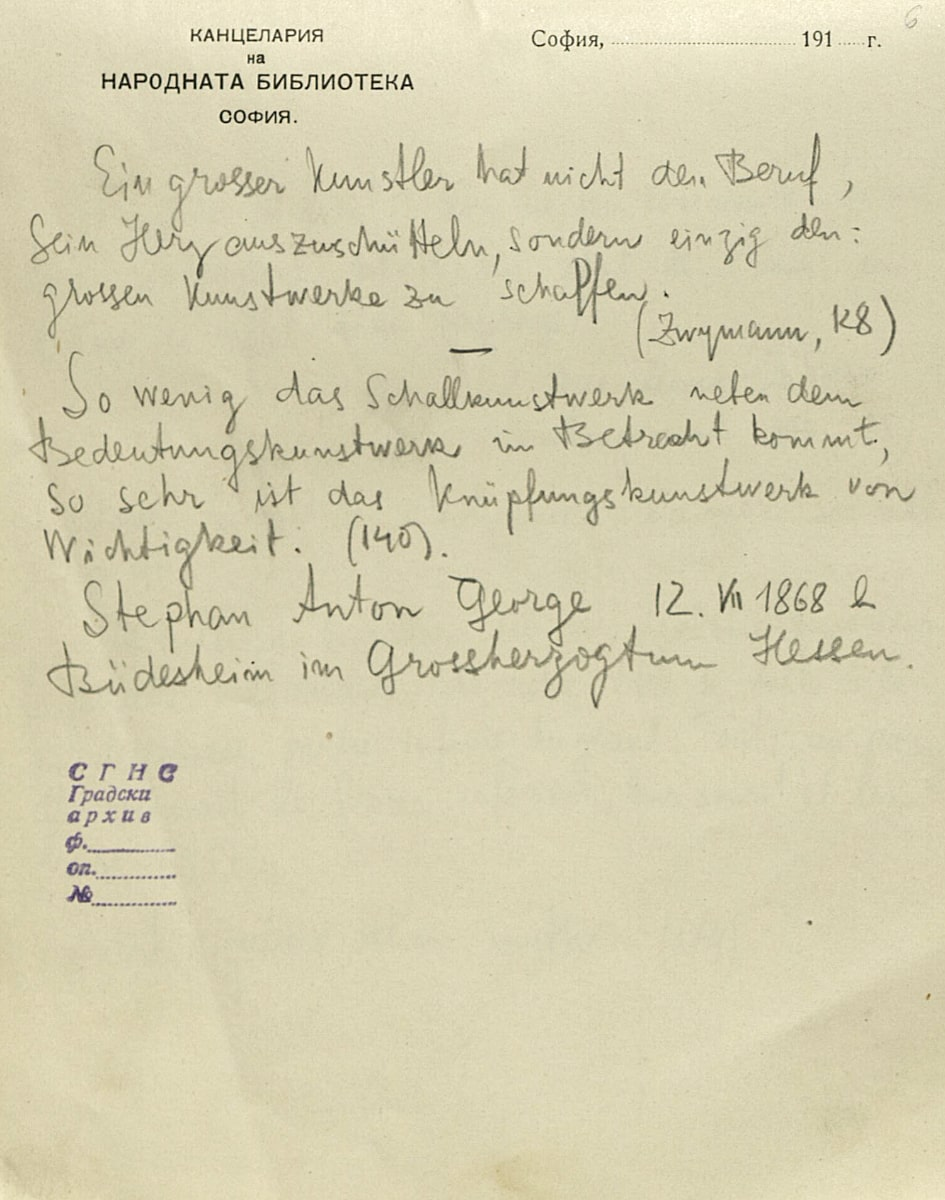 6
КАНЦЕЛАРИЯ
на
НАРОДНАТА БИБЛИОТЕКА
СОФИЯ.
София, ........................ 191.....г.
Ein grosser Künstler hat nicht den Beruf,
sein Herz auszuschütteln, sondern einzig den:
grossen Kunstwerke zu schaffen.
(Zwymann, K8)
So wenig das Schallkunstwerk neben dem
Bedeutungskunstwerk in Betracht kommt,
so sehr ist das Knüpfungskunstwerk von
Wichtigkeit. (140).
Stephan Anton George 12. VII 1868
Büdesheim im Grossherzogtum Hessen.
СГНС
Градски
архив
ф.
оп.
№